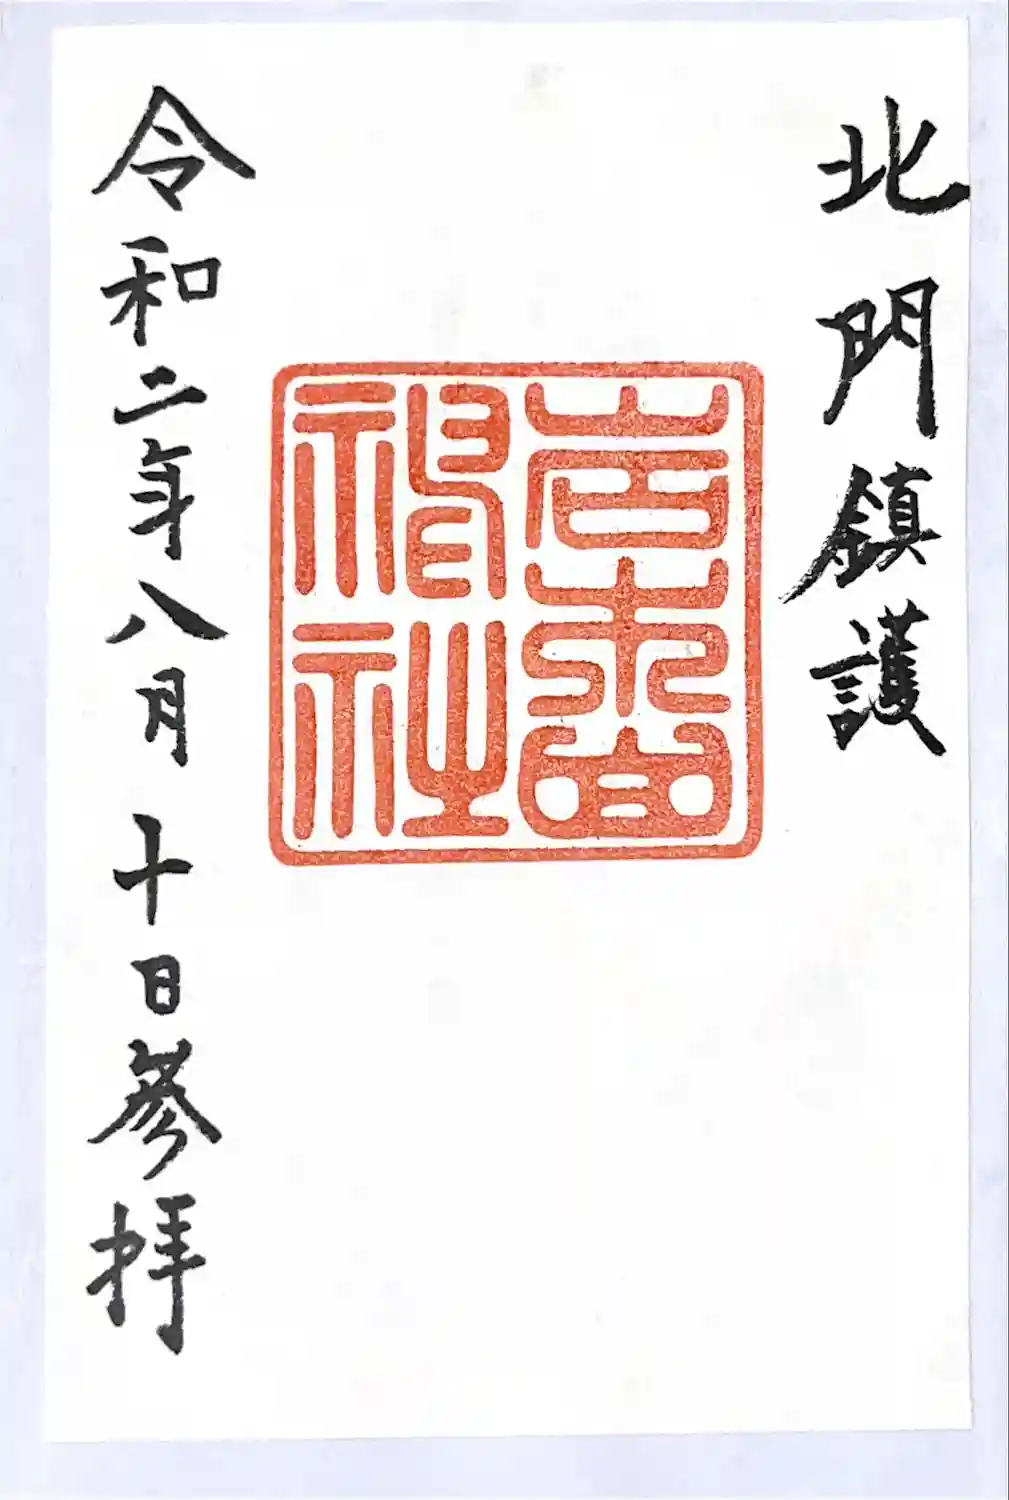 北門鎮護
岩木山
神社
令和二年八月十日参拝